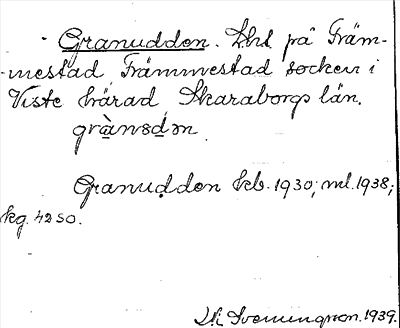 Granudden. Lht på Främ-
mestad, Främmestad socken i
Viste härad Skaraborgs län.
grànsdən
Granudden kb. 1930; ml. 1938;
kg. 4250.
Svenningson. 1939.